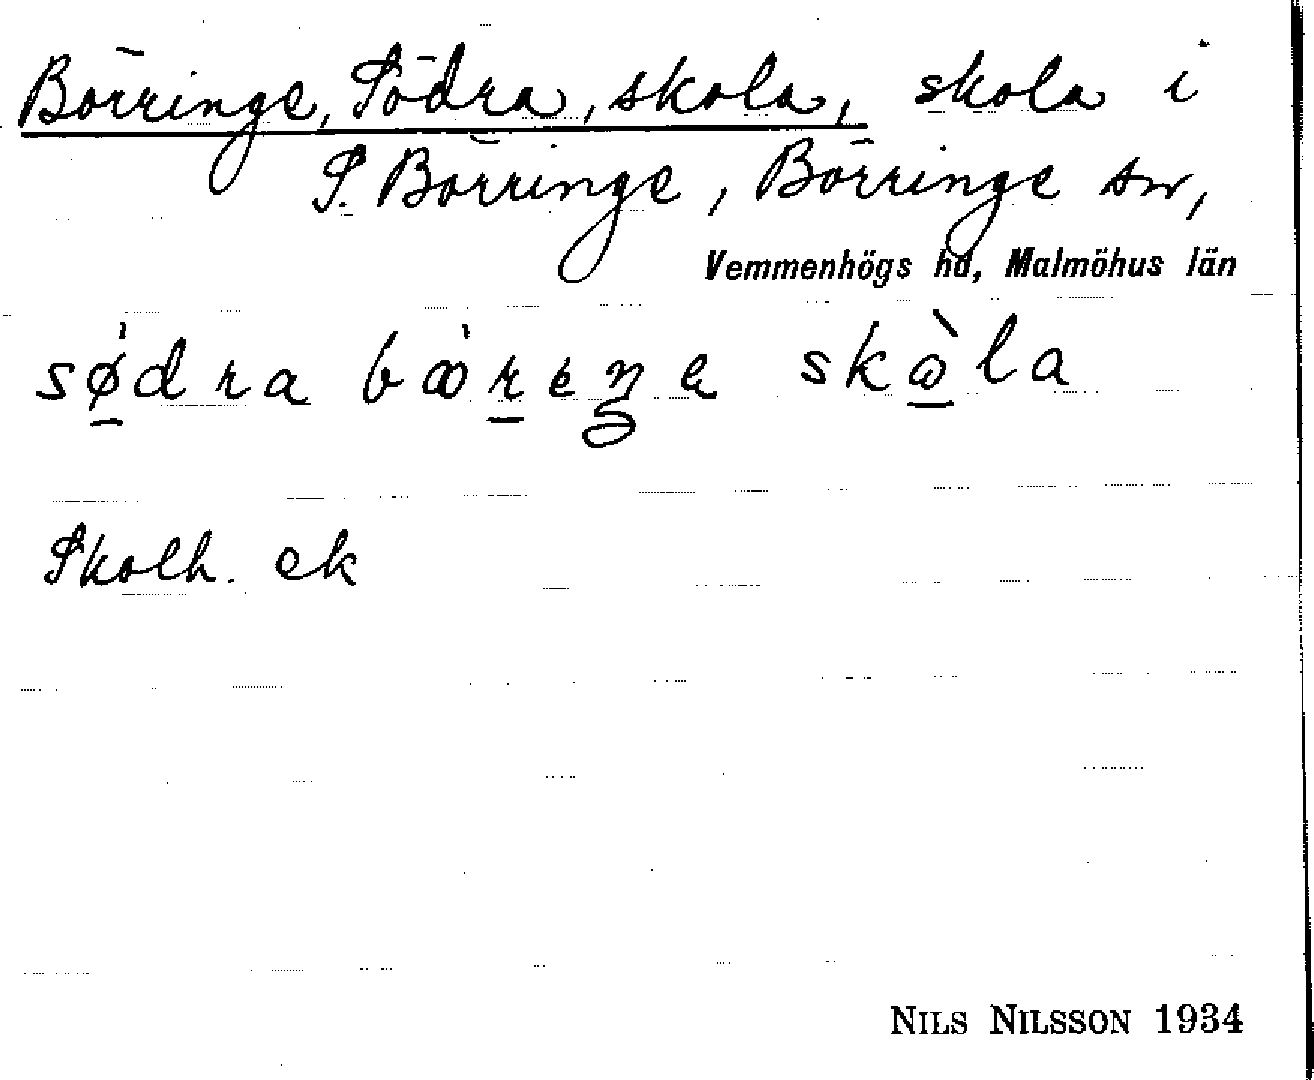 Börringe, Södra, skola, skola i
S. Börringe, Börringe sn,
Vemmenhögs hd, Malmöhus län
sǿ̠dra bꝏ́r̠eŋe skꝏ̠̀la
Skolh. ek
NILS NILSSON 1934